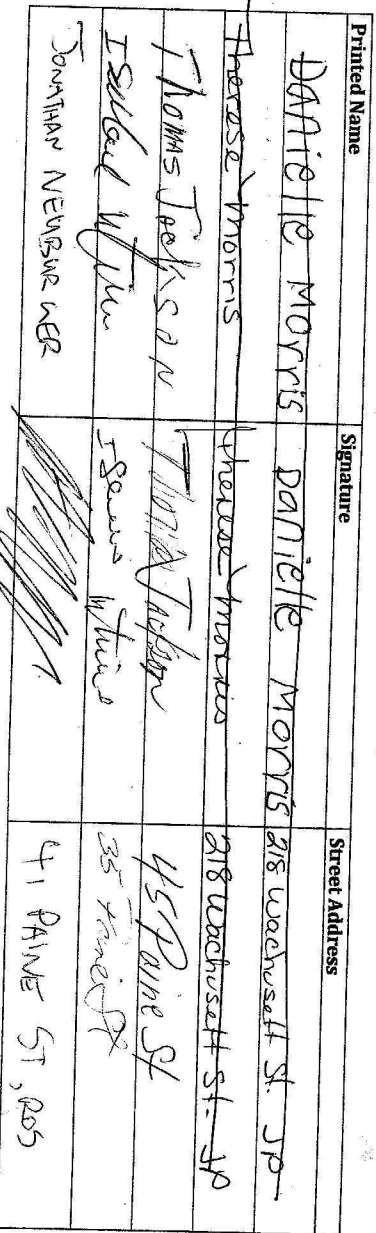 Printed Name Signature Street Address
Danielle Morris Danielle Morris 218 Wachusett St. JP
Therese Morris Therese Morris 218 Wachusett St. JP
Thomas Jackson Thomas Jackson 45 Paine St
35 St
JONATHAN NEUBURGER 41 PAINE ST, ROS